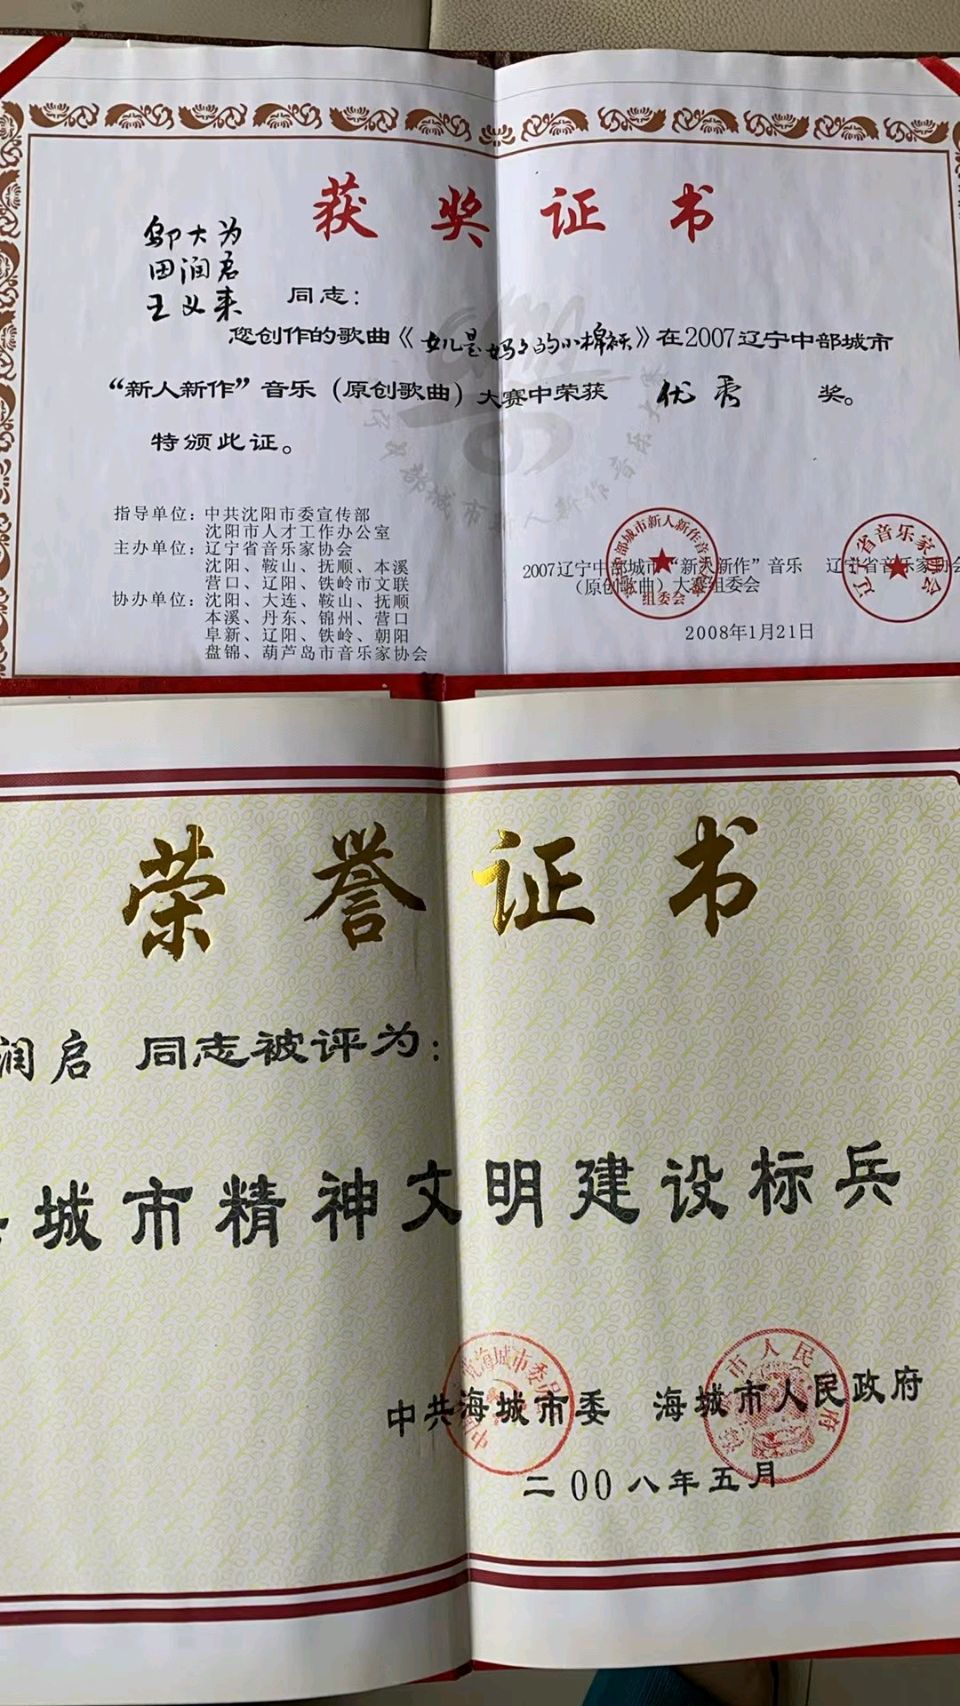 获奖证书
邬大为
田润启
王义来
同志：
您创作的歌曲《女儿是妈妈的小棉袄》在2007辽宁中部城市
“新人新作”音乐（原创歌曲）大赛中荣获 优秀 奖。
特颁此证。
指导单位：中共沈阳市委宣传部
沈阳市人才工作办公室
主办单位：辽宁省音乐家协会
沈阳、鞍山、抚顺、本溪
营口、辽阳、铁岭市文联
协办单位：沈阳、大连、鞍山、抚顺
本溪、丹东、锦州、营口
阜新、辽阳、铁岭、朝阳
盘锦、葫芦岛市音乐家协会
2007辽宁中部城市“新人新作”音乐 辽宁省音乐家协会
（原创歌曲）大赛组委会
2008年1月21日
辽宁省音乐家协会
组委会
荣誉证书
润启 同志被评为：
城市精神文明建设标兵
中共海城市委 海城市人民政府
二00八年五月